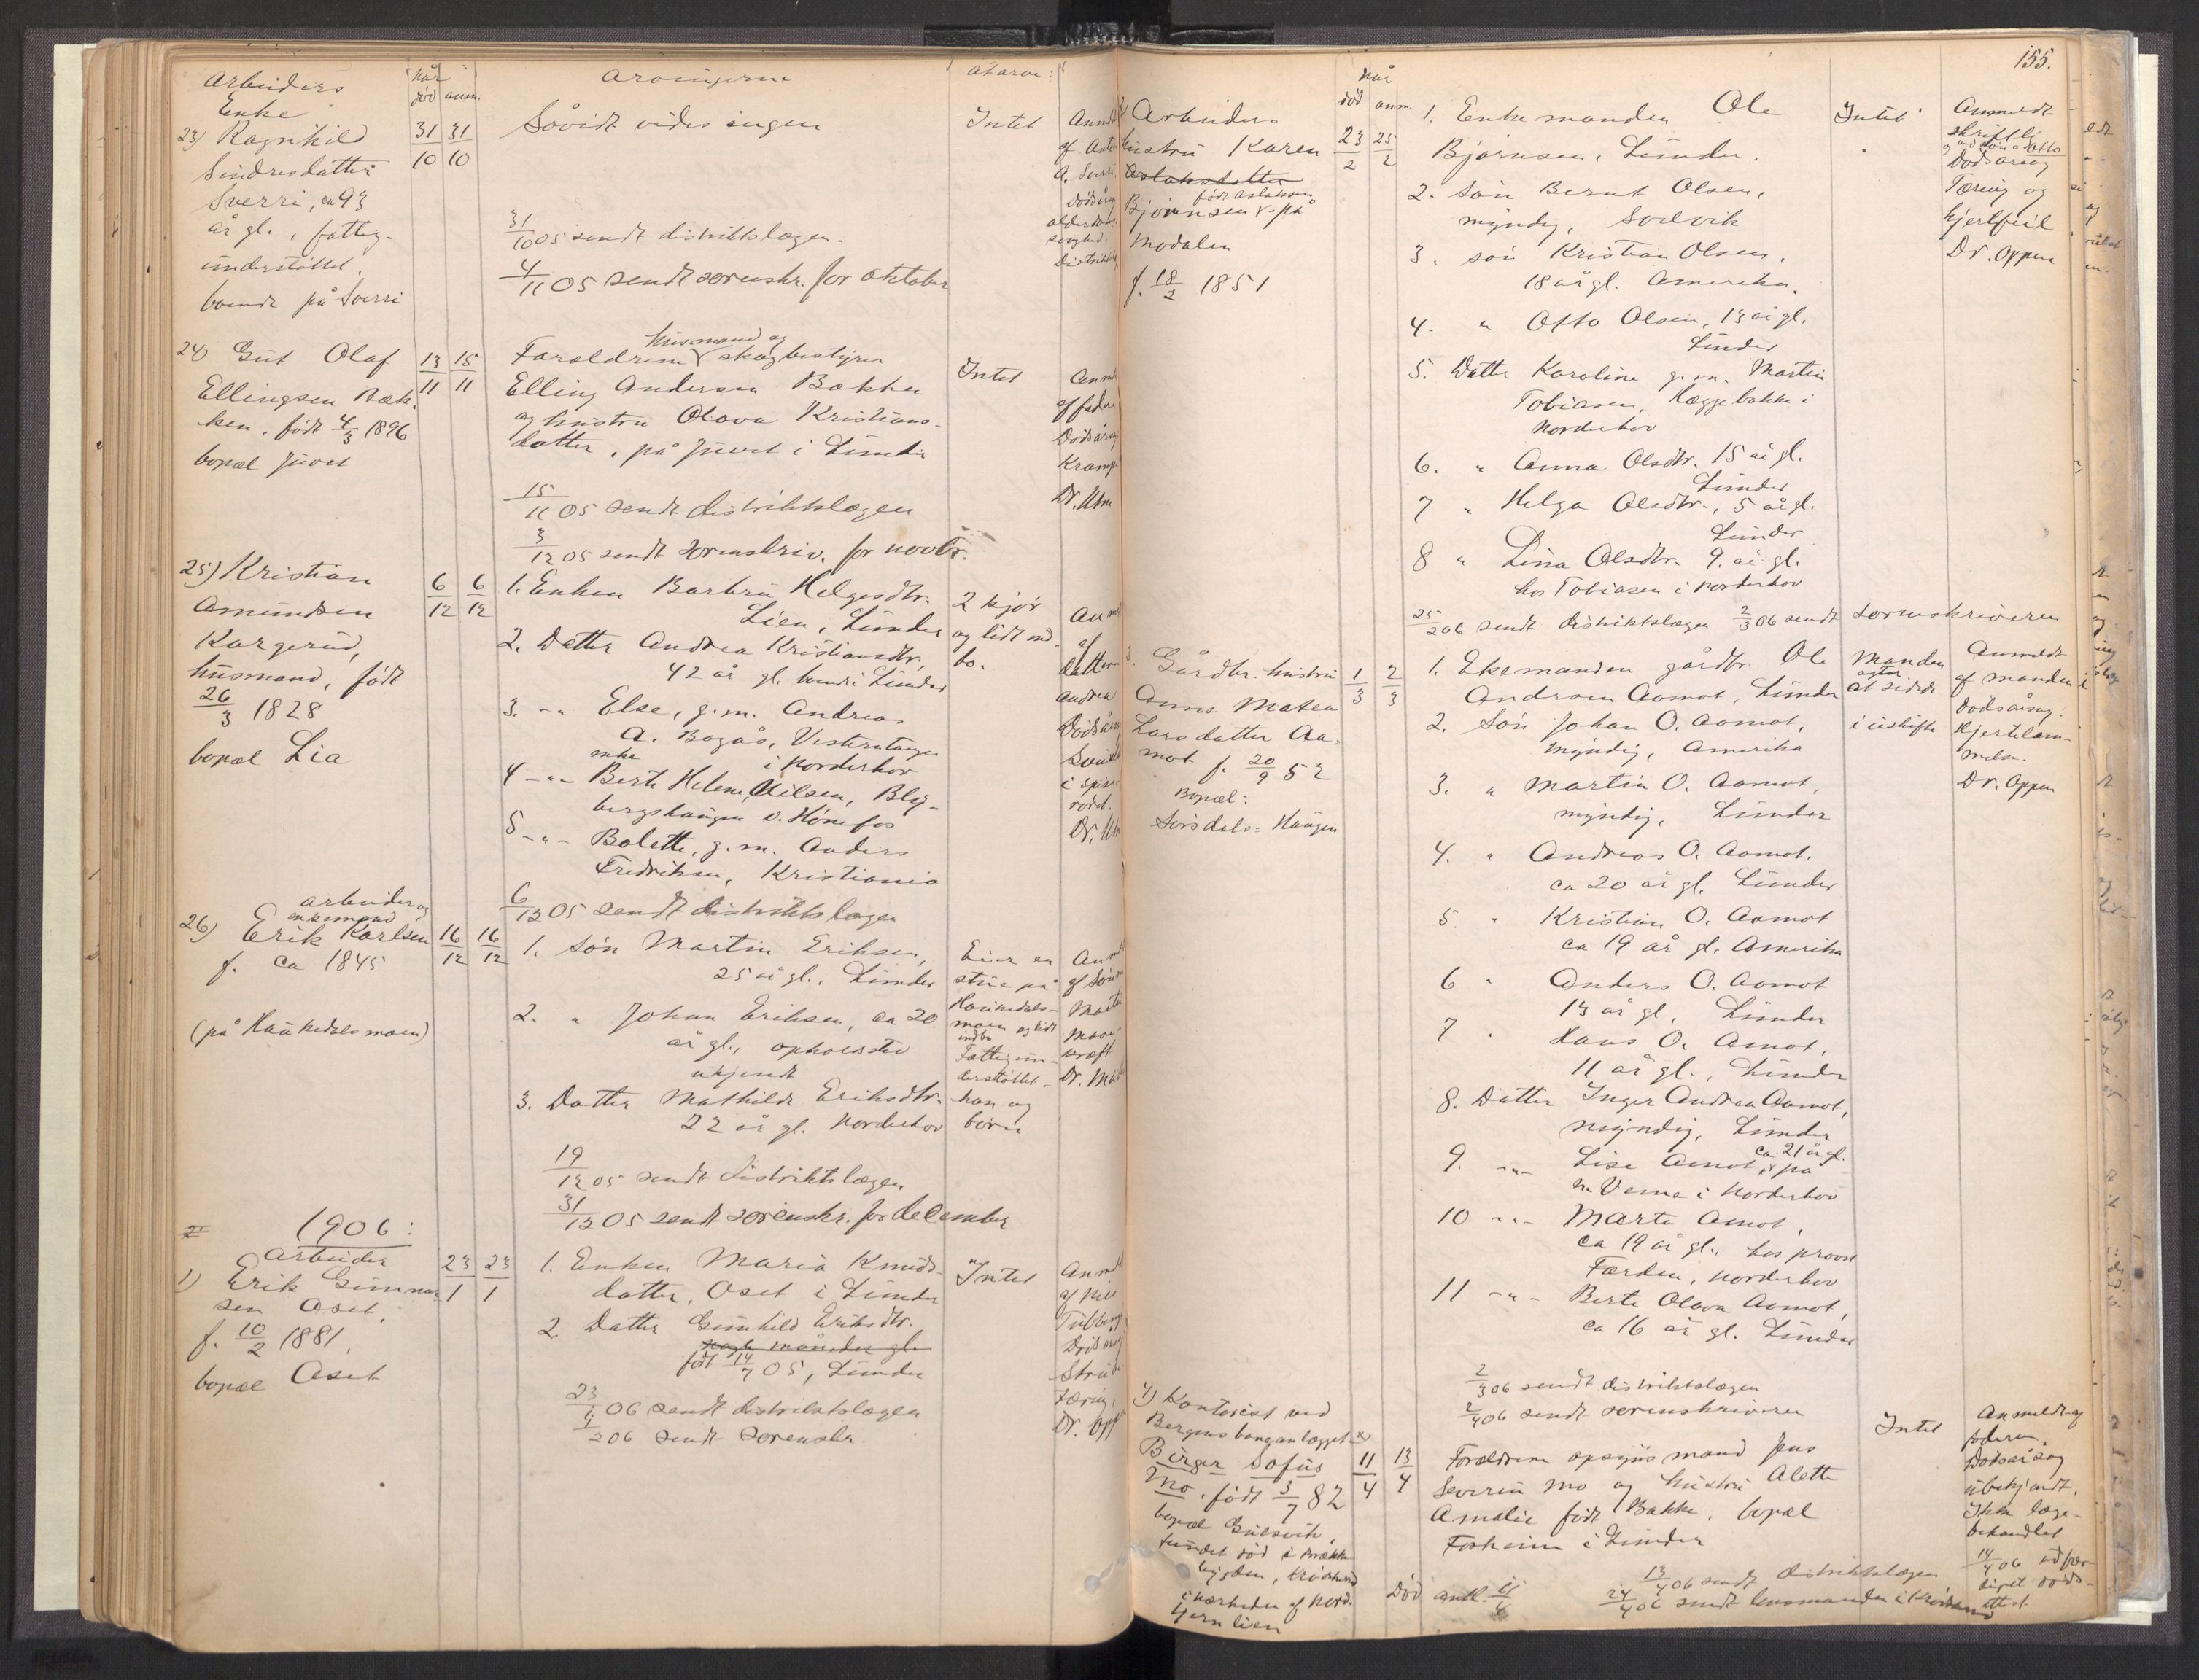 Arbeiders
Enke
når
død anm.
Arvingerne
At arve:
23) Ragnhild
Sindresdatter
Sverri, ca 93
år gl., fattig-
understøttet.
boende på Sverri
31/10 31/10
Såvidt vides ingen
31/10 05 sendt distriktslægen.
4/11 05 sendt sorenskr. for oktober
Intet
Anm
af
A. Sverr
Dødsårs
alderdoms
svaghed.
Distrikts
24) Gut Olaf
Ellingsen Bæk-
ken, født 4/3 1896
bopæl Juvet
13/11 15/11
Forældrene husmand og skogbestyrer
Elling Andersen Bækken
og hustru Olava Kristians-
datter, på Juvet i Lunder
15/11 05 sendt distriktslægen
3/12 05 sendt sorenskriv. for novbr.
Intet
Anm
af fader
Dødsårs
Krampe
Dr. Utne
25) Kristian
Amundsen
Kargerud,
husmand, født
26/3 1828
bopæl Lia
6/12 6/12
1. Enken Barbru Helgesdtr.
Lien, Lunder
2. Datter Andrea Kristiansdtr,
42 år gl. boende i Lunder
3. -"- Else, g.m. Andreas
A. Bagås, Vestretangen
i Norderhov
4 -"- Berte Helene enke Nilsen, Bly-
bergshaugen v. Hønefos
5 -"- Bolette, g.m. Anders
Fredriksen, Kristiania
6/12 05 sendt distriktslægen
2 kjør
og lidt ind-
bo.
Anm
af
Datteren
Andrea
Dødsårs
i spise
røret.
Dr. Utn
arbeider og
enkemand
26) Erik Karlsen
f. ca 1845
(på Haukedalsmoen)
16/12 16/12
1. Søn Martin Eriksen,
25 år gl., Lunder
2. " Johan Eriksen, ca 20
år gl., opholdssted
ukjendt
3. Datter Mathilde Eriksdtr.
22 år gl. Norderhov
19/12 05 sendt distriktslægen
31/12 05 sendt sorenskr. for december
Eier en
stue på
Haukedals-
moen og lidt
indbo
Fattigun-
derstøttet
han og
børn
Anm
af Sønn
Martin
Mave
kræft
Dr.
II 1906:
Arbeider
1) Erik Gunnar
sen Aset,
f. 10/2 1881,
bopæl Aset
23/1 23/1
1. Enken Maria Knuds-
datter, Aset i Lunder
2. Datter Gunhild Eriksdtr.
nogle måneder gl.
født 14/7 05, Lunder
23/1 06 sendt distriktslægen
4/2 06 sendt sorenskr.
Intet
Anmeldt
af
Dødsårs
Strube
Tæring,
Dr. Opp
155.
når
død anm.
2) Arbeiders
hustru Karen
Aslaksdatter
født Aslaksen
Bjørnsen på
Modalen
f. 18/2 1851
23/2 25/2
1. Enkemanden Ole
Bjørnsen, Lunder.
2. Søn Bernt Olsen,
myndig, Solvik
3. søn Kristian Olsen,
18 år gl. Amerika.
4. " Otto Olsen, 13 år gl.
Lunder
5. Datter Karoline g.m. Martin
Tobiasen, Heggebakke i
Norderhov
6. " Anna Olsdtr. 15 år gl.
Lunder
7 " Helga Olsdtr., 5 år gl.
Lunder
8 " Lina Olsdtr. 9 år gl.
hos Tobiasen i Norderhov
25/2 06 sendt distriktslægen 2/3 06 sendt sorenskriveren
Intet
Anmeldt
skriftlig
og ved søn Otto
Dødsårsag
Tæring og
hjertfeil
Dr. Oppen
3. Gårdbr. hustru
Anne Matea
Larsdatter Aa-
mot f. 20/9 52
Bopæl:
Sørsdals-Haugen
1/3 2/3
1. Ekemanden gårdbr Ole
Andersen Aamot, Lunder
2. Søn Johan O. Aamot,
myndig, Amerika
3. " Martin O. Aamot,
myndig, Lunder
4. " Andreas O. Aamot,
ca 20 år gl. Lunder
5 " Kristian O. Aamot
ca 19 år gl. Amerika
6 " Anders O. Aamot
13 år gl, Lunder
7 " Hans O. Amot,
11 år gl., Lunder
8. Datter Inger Andrea Aamot,
myndig, Lunder
9. -"- Lise Amot, ca 21 år gl. på
n. Veme i Norderhov
10 -"- Marte Amot,
ca 19 år gl., hos provst
Færden, Norderhov
11 -"- Berte Olava Aamot,
ca 16 år gl. Lunder
2/3 06 sendt distriktslægen
2/4 06 sendt sorenskriveren
Manden
agter
at sidde
i uskifte
Anmeldt
af manden
Dødsårsag:
Hjertelam-
melse.
Dr. Oppen
4) Kontorist ved
Bergensbaneanlægget
Birger Sofus
Mo. født 3/7 82
bopæl Gulsvik,
fundet død i
bygden, Krødsherred
i nærheden af Nord.
Hjernlien
11/4 13/4
Forældrene opsynsmand Jens
Severin Mo og hustru Alette
Amalie født Bakke, bopæl
Forheim i Lunder
Død antl. 11/4
13/4 06 sendt distriktslægen
24/4 06 sendt lensmanden i Krødsherred
Intet
Anmeldt af
faderen.
Dødsårsag
ubekjendt.
Ikke læge-
behandlet
14/4 06 udfær-
diget døds-
attest.